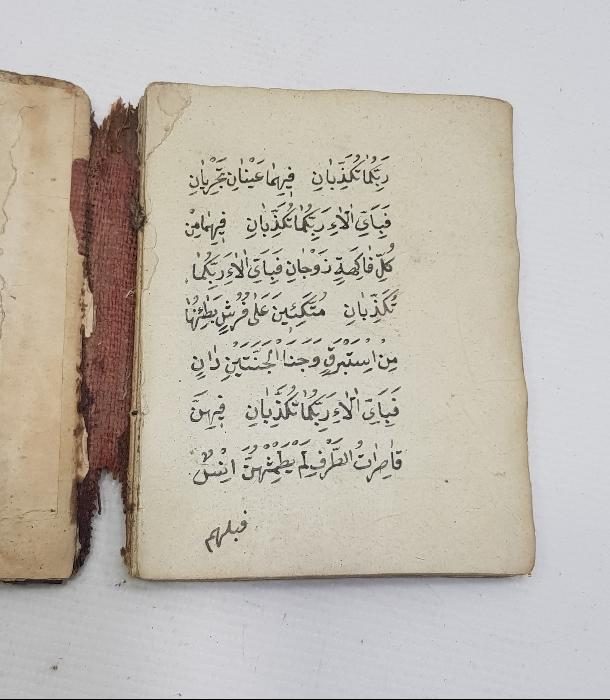 رَبِّكُمَا تُكَذِّبَانِ فِيهِمَا عَيْنَانِ تَجْرِيَانِ
فَبِاَيِّ اٰلَاءِ رَبِّكُمَا تُكَذِّبَانِ فِيهِمَا مِنْ
كُلِّ فَاكِهَةٍ زَوْجَانِ فَبِاَيِّ اٰلَاءِ رَبِّكُمَا
تُكَذِّبَانِ مُتَّكِئِينَ عَلٰى فُرُشٍ بَطَائِنُهَا
مِنْ اِسْتَبْرَقٍ وَجَنَا الْجَنَّتَيْنِ دَانٍ
فَبِاَيِّ اٰلَاءِ رَبِّكُمَا تُكَذِّبَانِ فِيهِنَّ
قَاصِرَاتُ الطَّرْفِ لَمْ يَطْمِثْهُنَّ اِنْسٌ
قبلهم